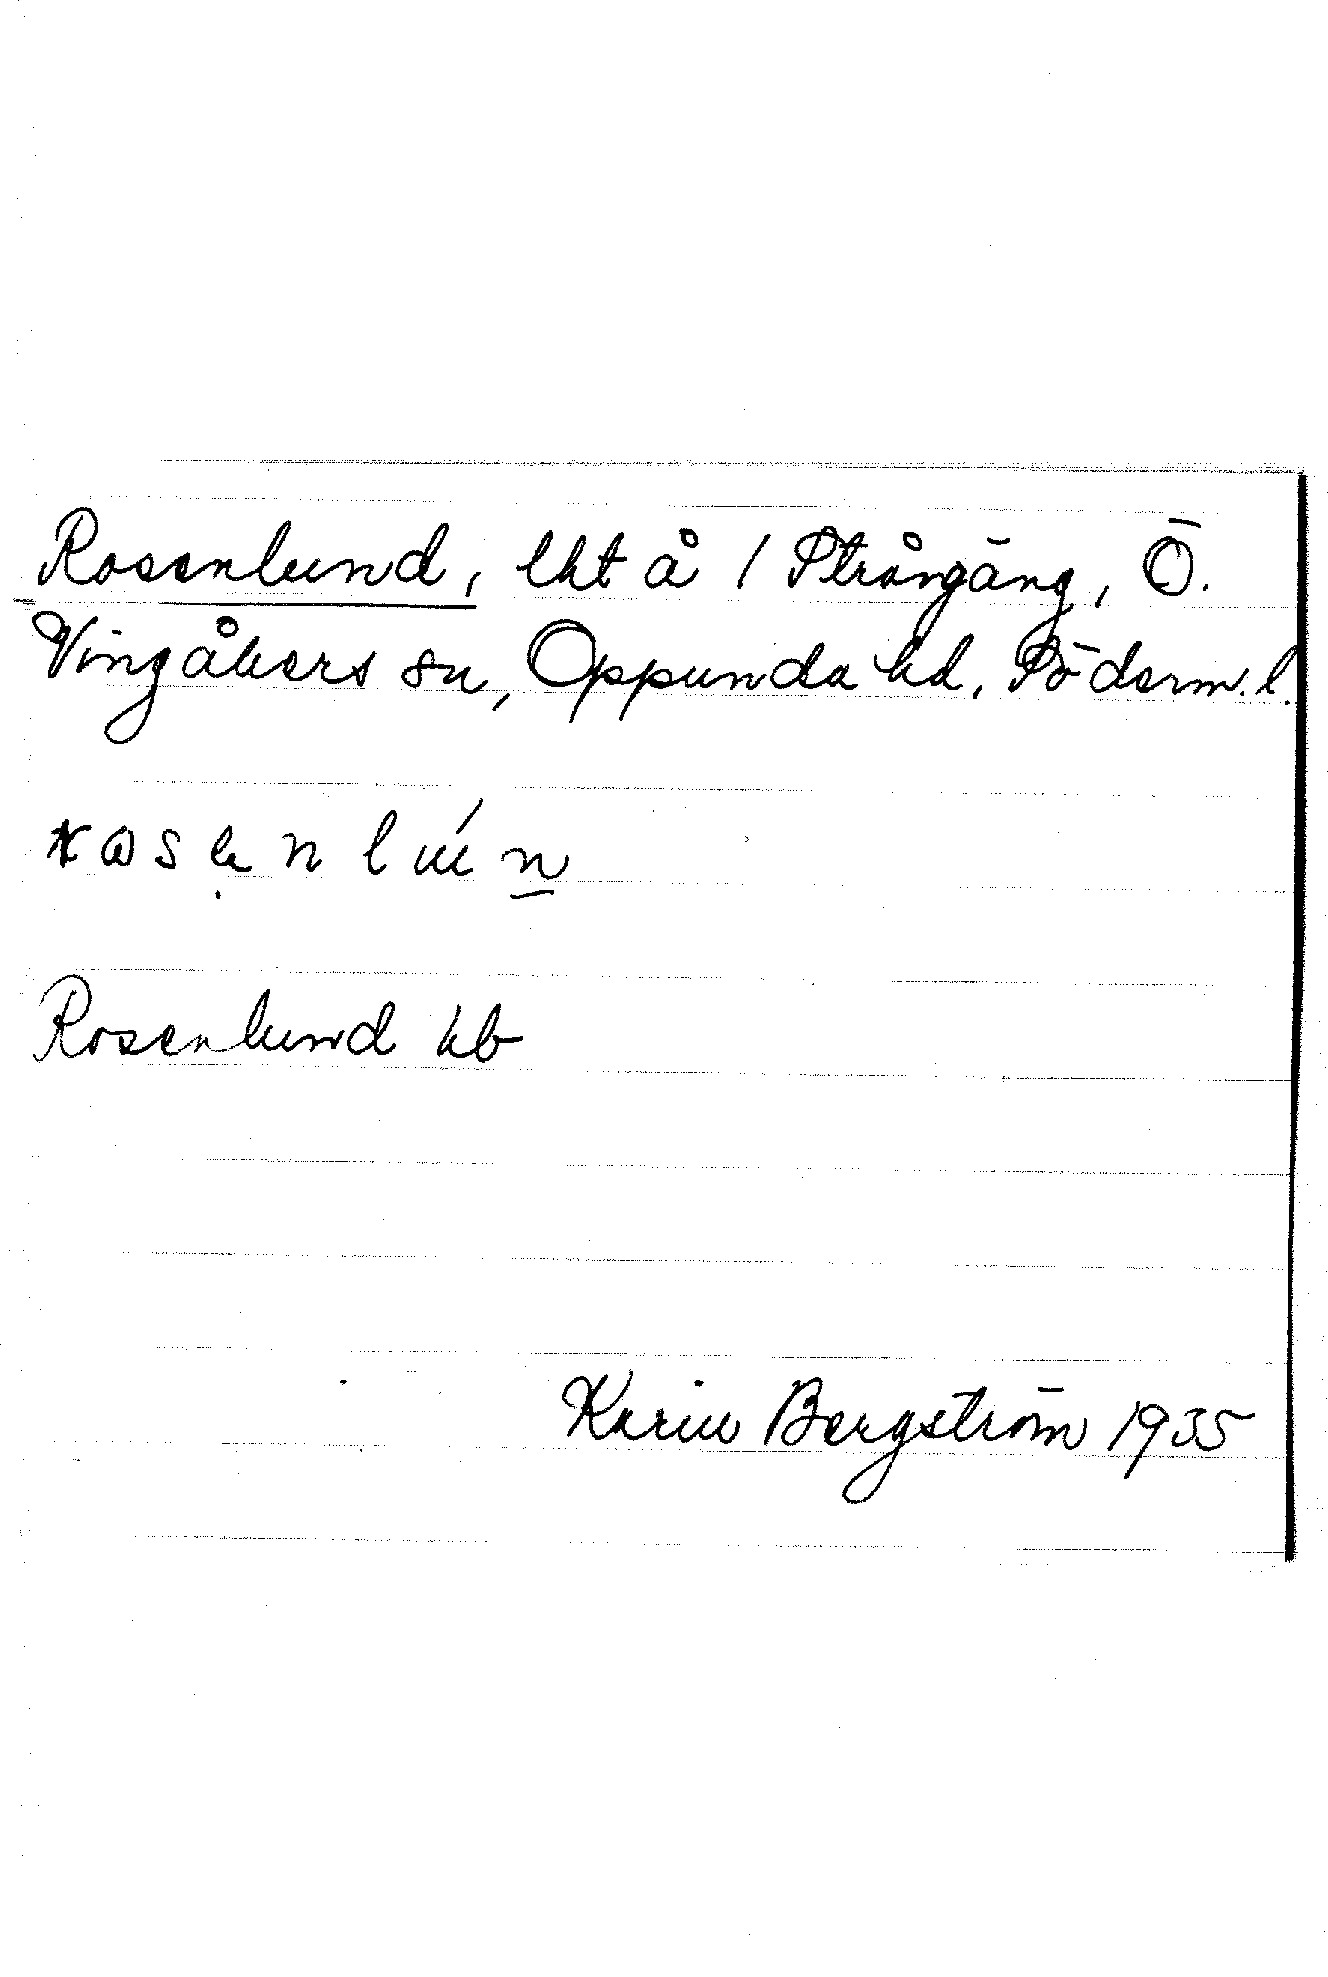 Rosenlund, lht å / Strångäng, Ö.
Vingåkers sn, Oppunda hd, Söderm. l.
Rosenlund kb
Karin Bergström 1935